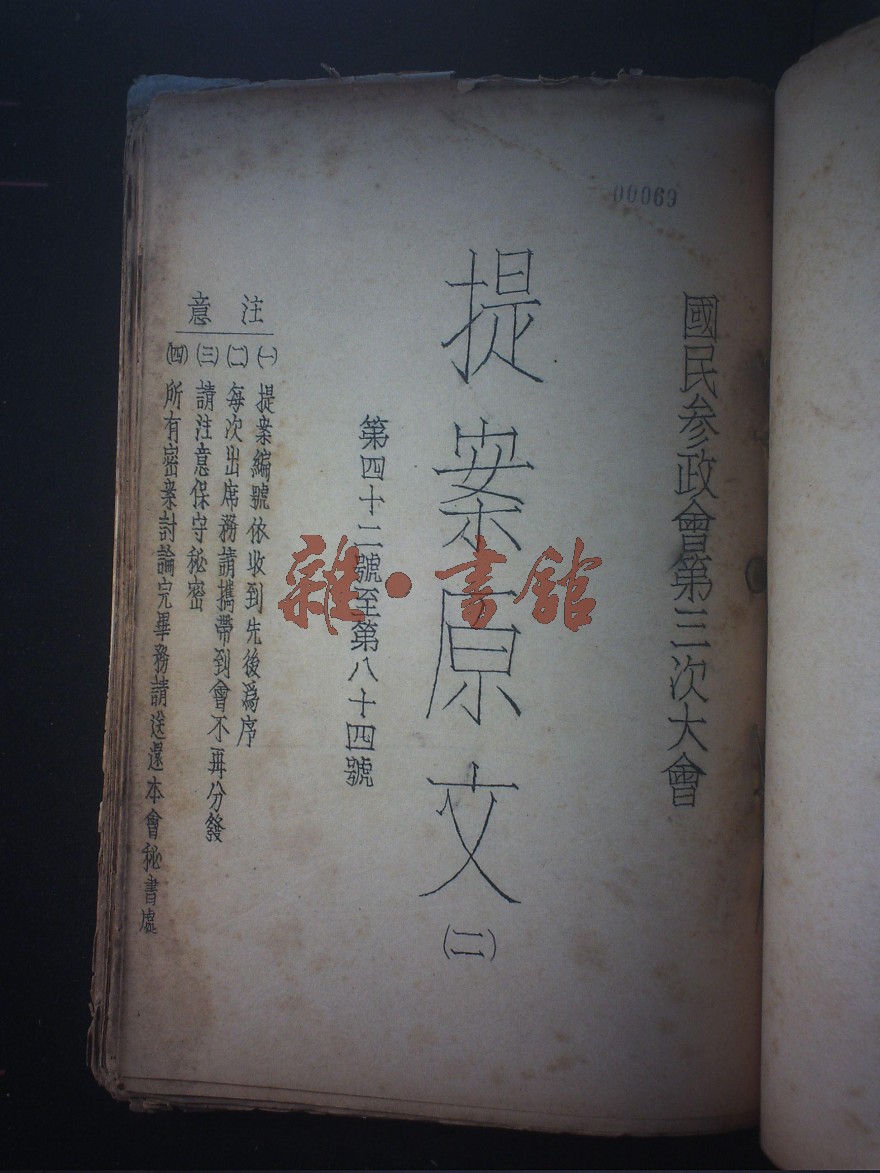 00069
國民参政會第三次大會
提案原文
(二)
第四十二號至第八十四號
注意
(一)提案編號依收到先後爲序
(二)每次出席務請攜帶到會不再分發
(三)請注意保守秘密
(四)所有密案討論完畢務請送還本會秘書處
雜·書館